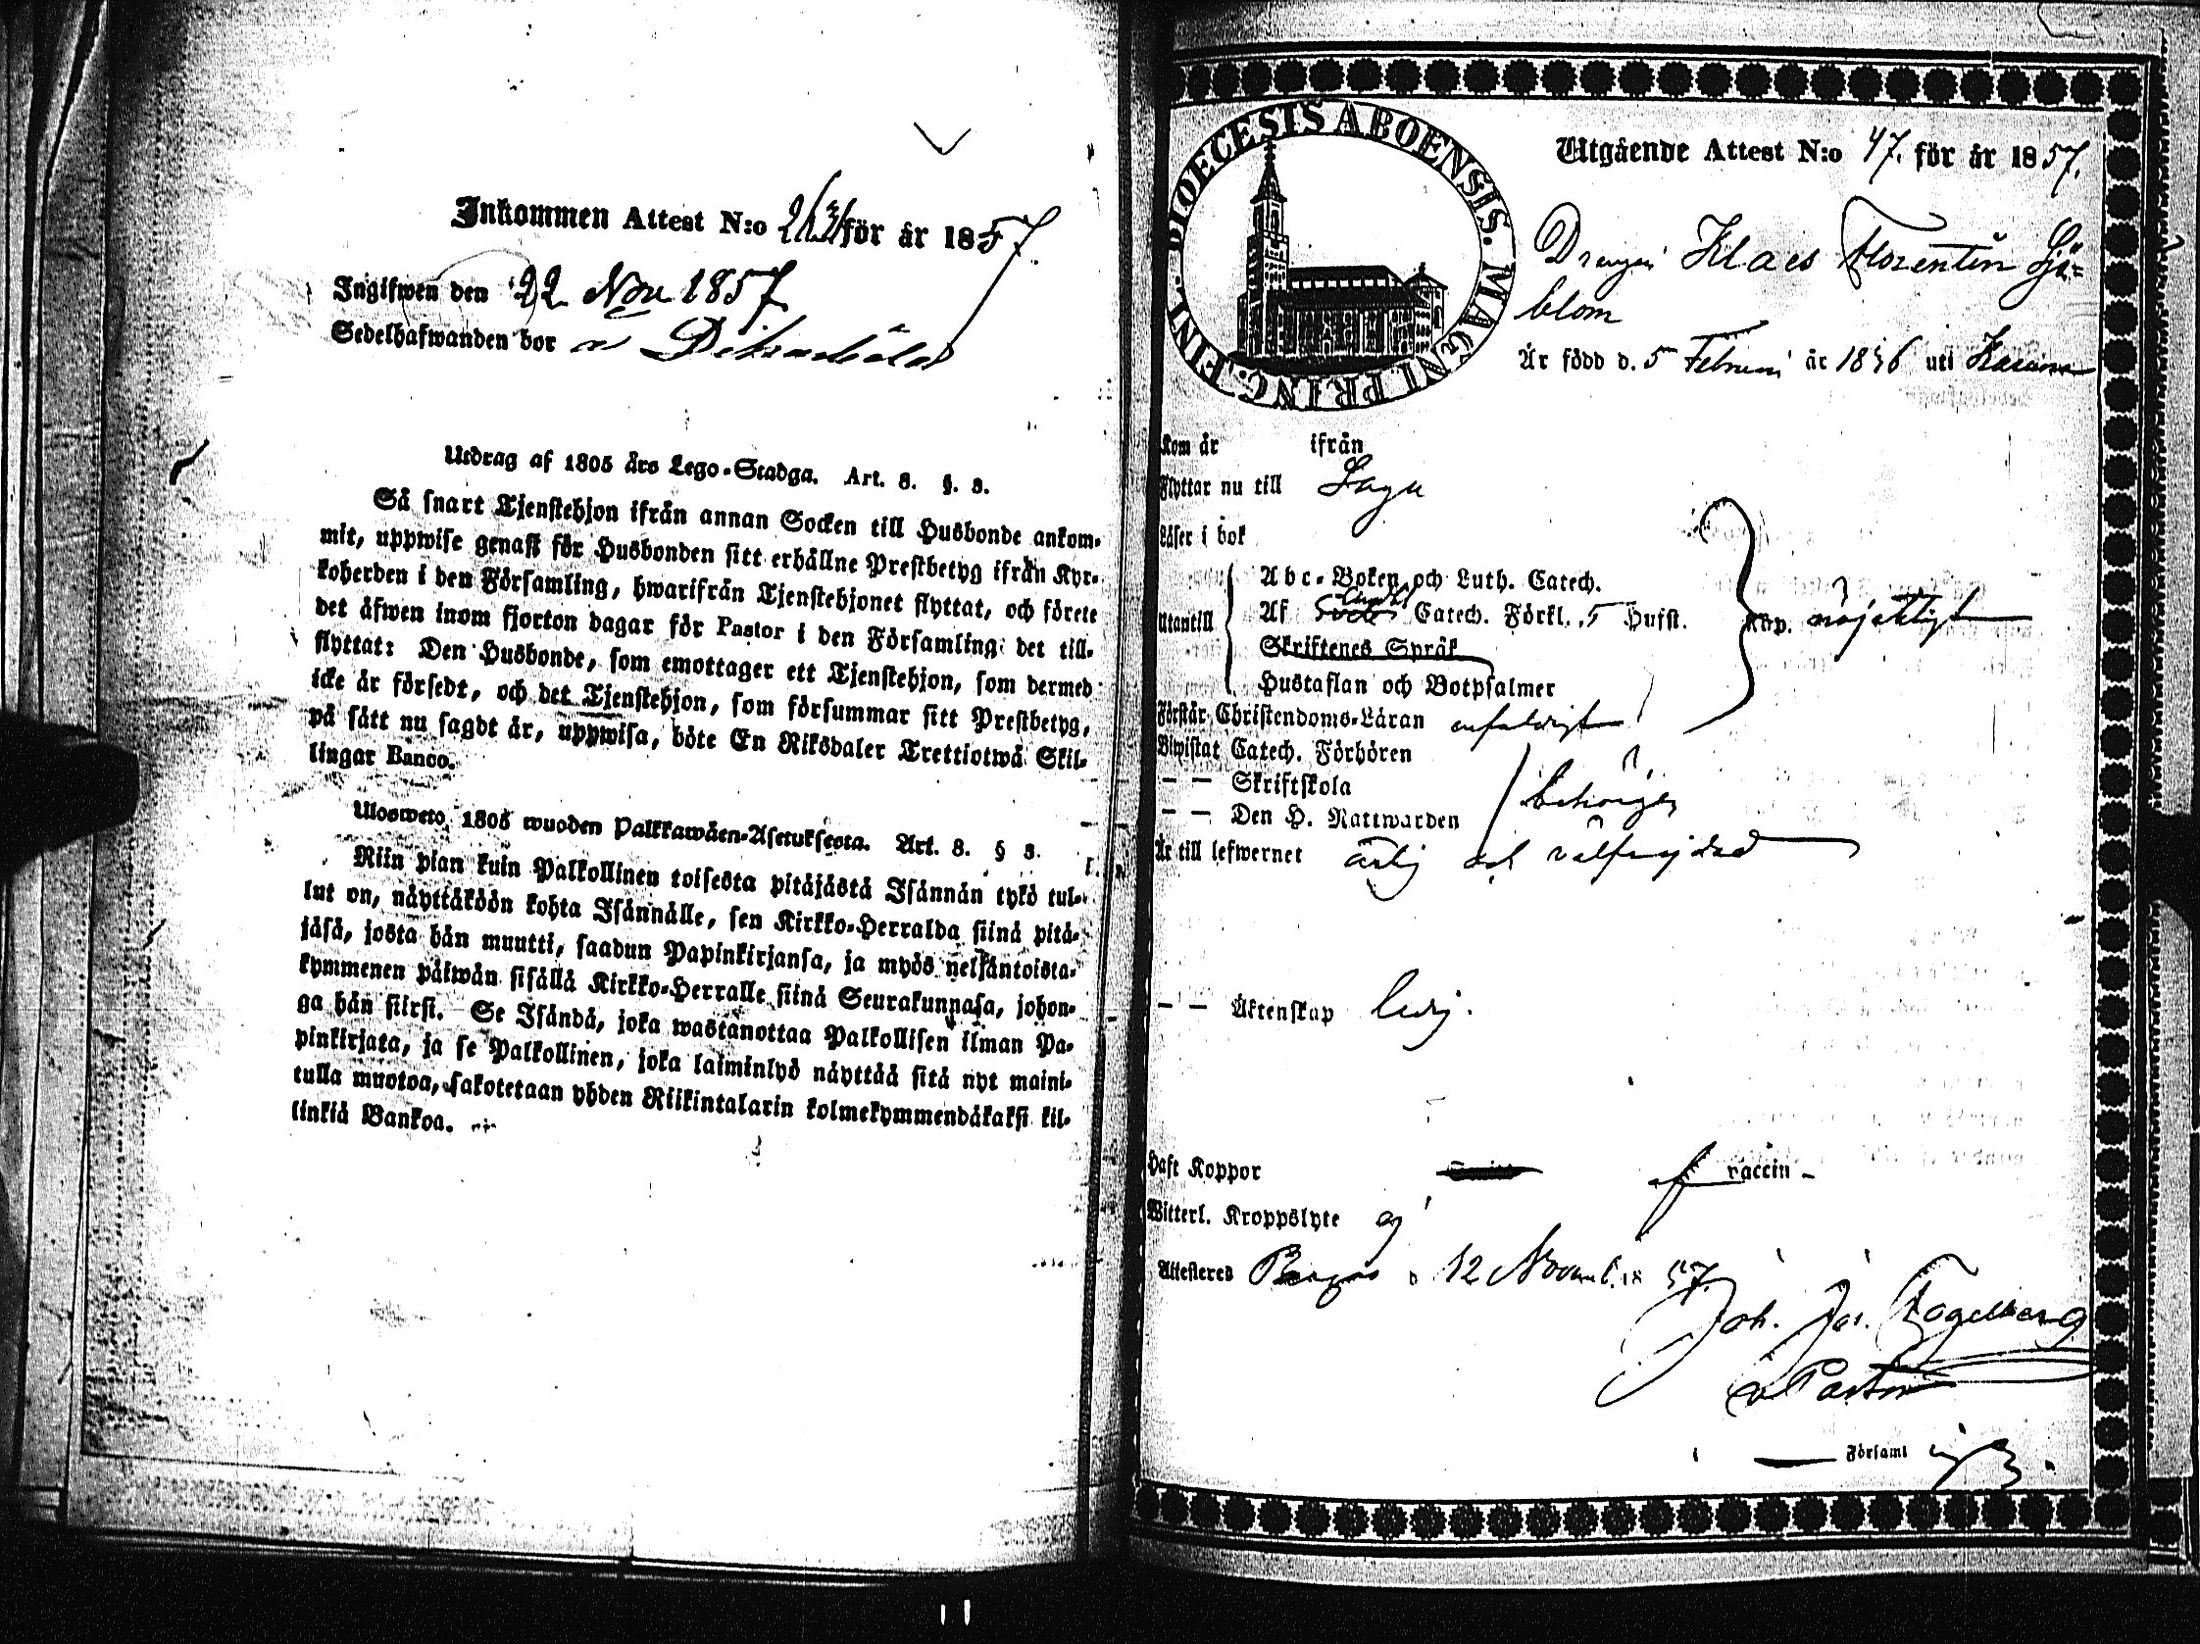 Inkommen Attest N:o för år 1857.
Ingifwen den 22 Nov 1857
Sedelhafwanden bor
Utdrag af 1805 års Lego-Stadga. Art. 8. §. 3.
Så snart Tjenstehjon ifrån annan Socken till Husbonde ankom-
mit, uppwise genast för Husbonden sitt erhållne Prestbetyg ifrån Kyr-
koherden i den Församling, hwarifrån Tjenstehjonet flyttat, och förete
det äfwen inom fjorton dagar för Pastor i den Församling det till-
flyttat: Den Husbonde, som emottager ett Tjenstehjon, som dermed
icke är försedt, och det Tjenstehjon, som försummar sitt Prestbetyg,
på sätt nu sagdt är, uppwisa, böte En Riksdaler Trettiotwå Skil-
lingar Banco.
Ulosweto 1805 wuoden Palkkawäen-Asetuksesta. Art. 8. § 3.
Niin pian kuin Palkollinen toisesta pitäjästä Isännän tykö tul-
lut on, näyttäköön kohta Isännälle, sen Kirkko-Herralda siinä pitä-
jäsä, josta hän muutti, saadun Papinkirjansa, ja myös neljäntoista-
kymmenen päiwän sisällä Kirkko-Herralle siinä Seurakunnasa, johon-
ga hän siirsi. Se Isändä, joka wastanottaa Palkollisen ilman Pa-
pinkirjata, ja se Palkollinen, joka laiminlyö näyttää sitä nyt maini-
tulla muotoa, sakotetaan yhden Riikintalarin kolmekymmendäkaksi kil-
linkiä Bankoa.
DIOECESIS ABOENSIS. MAGNI PRINC. FINL.
Utgående Attest N:o 47. för år 1857.
Drengen Klaes Florentin Sjö=
blom
Är född d. 5 Februari år 1836 uti
Kom år ifrån
Flyttar nu till Sagu
Läser i bok
Abc-Boken och Luth. Catech.
Utantill Af Catech. Förkl. 5 Hufst. Kap. nöjaktigt
Skriftenes Språk
Hustaflan och Botpsalmer
Förstår Christendoms-Läran enfaldigt
Biwistat Catech. Förhören
— — Skriftskola behörigen
— — Den H. Nattwarden
Är till lefwernet ärlig och välfrejdad
— — Äktenskap ledig.
Haft Koppor af vaccin
Witterl. Kroppslyte ej
Attesteres d 12 Novemb. 1857.
Joh. Jac. Fogelberg
v Pastor
Församl